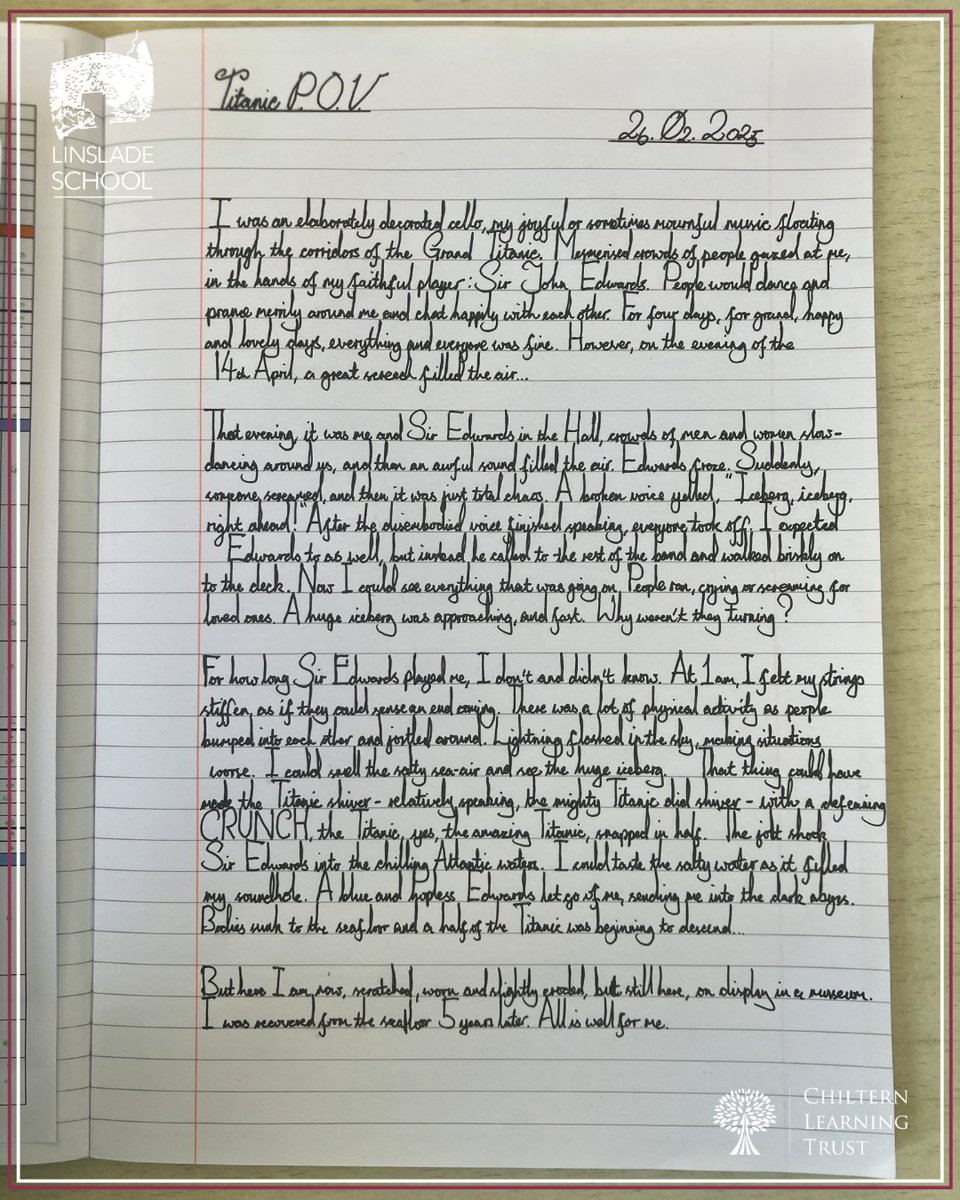 LINSLADE
SCHOOL
Titanic P.O.V
26.02.2025
I was an elaborately decorated cello, my joyful or somtimes mournful music floating
through the corridors of the Grand Titanic. Mesmerised crowds of people gazed at me,
in the hands of my faithful player: Sir John Edwards. People would dance and
prance merrily around me and chat happily with each other. For four days, for grand, happy
and lovely days, everything and everyone was fine. However, on the evening of the
14th April, a great screech filled the air...
That evening, it was me and Sir Edwards in the Hall, crowds of men and women slow-
dancing around us, and then an awful sound filled the air. Edwards froze. Suddenly,
someone screamed, and then it was just total chaos. A broken voice yelled, "Iceberg, iceberg,
right ahead!" After the disembodied voice finished speaking, everyone took off. I expected
Edwards to as well, but instead he called to the rest of the band and walked briskly on
to the deck. Now I could see everything that was going on. People ran, crying or screaming for
loved ones. A huge iceberg was approaching, and fast. Why weren't they turning?
For how long Sir Edwards played me, I don't and didn't know. At 1am, I felt my strings
stiffen, as if they could sense an end coming. There was a lot of physical activity as people
bumped into each other and jostled around. Lightning flashed in the sky, making situations
worse. I could smell the salty sea-air and see the huge iceberg. That thing could have
made the Titanic shiver - relatively speaking, the mighty Titanic did shiver - with a defening
CRUNCH, the Titanic, yes, the amazing Titanic, snapped in half. The jolt shook
Sir Edwards into the chilling Atlantic waters. I could taste the salty water as it filled
my soundhole. A blue and hopless Edwards let go of me, sending me into the dark abyss.
Bodies sunk to the seafloor and a half of the Titanic was beginning to descend...
But here I am now, scratched, worn and slightly eroded, but still here, on display in a musseum.
I was recovered from the seafloor 5 years later. All is well for me.
CHILTERN
LEARNING
TRUST